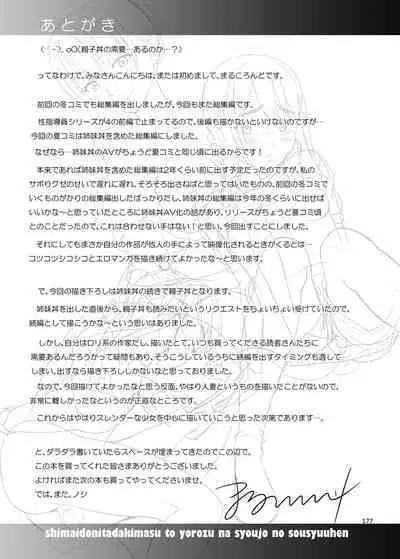 あとがき
(´-`).｡oO(親子丼の需要…あるのか…?)
ってなわけで、みなさんこんにちは、または初めまして、まるころんどです。
前回の冬コミでも総集編を出しましたが、今回もまた総集編です。
性指導員シリーズが4の前編で止まってるので、後編も描かないといけないのですが…
今回の夏コミは姉妹丼を含めた総集編にしました。
なぜなら…姉妹丼のAVがちょうど夏コミと同じ頃に出るからです!
本来であれば姉妹丼を含めた総集編は2年くらい前に出す予定だったのですが、私の
サボりグセのせいで遅れに遅れ、そろそろ出さねばと思ってはいたものの、前回の冬コミで
いくものがたりの総集編出したばっかりだし、姉妹丼の総集編は今年の冬くらいに出せば
いいかな～と思っていたところに姉妹丼AV化の話があり、リリースがちょうど夏コミ頃
とのことだったので、これは合わせない手はない!と思い、今回出すことにしました。
それにしてもまさか自分の作品が他人の手によって映像化されるときがくるとは…
コツコツシコシコとエロマンガを描き続けてよかったな～と思います。
で、今回の描き下ろしは姉妹丼の続きで親子丼となります。
姉妹丼を出した直後から、親子丼も読みたいというリクエストをちょいちょい受けていたので、
続編として描こうかな～という思いはありました。
しかし、自分はロリ系の作家だし、描いたとて、いつも買ってくださる読者さんたちに
需要あるんだろうかって疑問もあり、そうこうしているうちに続編を出すタイミングも逃して
しまい、出すなら描き下ろししかないなと思っておりました。
なので、今回描けてよかったなと思う反面、やはり人妻というものを描いたことがないので、
非常に難しかったなというのが正直なところです。
これからはやはりスレンダーな少女を中心に描いていこうと思った次第であります…。
と、ダラダラ書いていたらスペースが埋まってきたのでこの辺で。
この本を買ってくれた皆さまありがとうございました。
よければまた次の本も買ってやってくださいませ。
では、また。ノシ
177
shimaidonitadakimasu to yorozu na syoujo no sousyuuhen